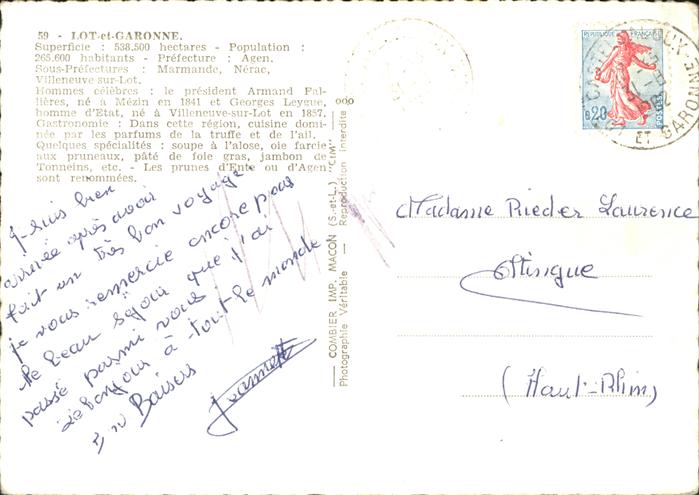 59 - LOT-et-GARONNE.
Superficie : 538.500 hectares - Population :
265.600 habitants - Préfecture : Agen.
Sous-Préfectures : Marmande, Nérac,
Villeneuve-sur-Lot.
Hommes célèbres : le président Armand Fal-
lières, né à Mézin en 1841 et Georges Leygue,
homme d'Etat, né à Villeneuve-sur-Lot en 1857.
Gastronomie : Dans cette région, cuisine domi-
née par les parfums de la truffe et de l'ail.
Quelques spécialités : soupe à l'alose, oie farcie
aux pruneaux, pâté de foie gras, jambon de
Tonneins, etc. - Les prunes d'Ente ou d'Agen
sont renommées.
Je suis bien
arrivée après avoir
fait un très bon voyage
je vous remercie encore pour
le beau séjour que j'ai
passé parmi vous
le bonjour à tout le monde
Baisers
Jeannette
COMBIER IMP. MACON (S.-et-L.) "CIM"
Photographie Véritable - Reproduction interdite
0,20
POSTES
ET GARONNE
Madame Rieder Laurence
Altingue
(Haut-Rhin)